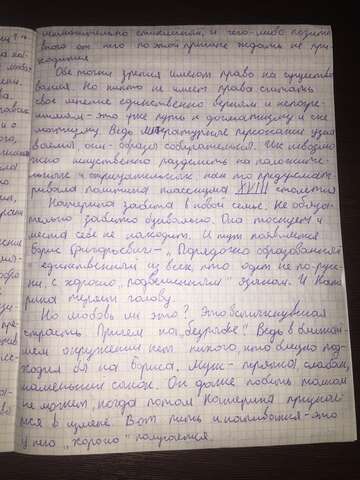 исключительно стихийный, и чего-либо позити
вного от него по этой причине ждать не при
ходится.
Обе точки зрения имеют право на существо
вания. Но никто не имеет права считать
свое мнение единственно верным и непогре
шимым - это уже путь к догматизму и схе
матизму. Ведь литературные персонажи узна
ваемы, они - образы собирательные. Их невозмо
жно искусственно разделить на положите
льных и отрицательных, как то предусмат
ривала поэтика классицизма XVIII столетия
Катерина забита в новой семье. Не обяза
тельно забита буквально. Она тоскует и
места себе не находит. И тут появляется
Борис Григорьевич - „Порядочно образованный
единственный из всех, кто одет не по-русс
ки, с хорошо „подвешенным" языком. И Кате
рина теряет голову.
Но любовь ли это? Это вспыхнувшая
страсть. Причем на „безрыбье". Ведь в ближай
шем окружении нет никого, кто внешне под
ходил бы на Бориса. Муж - тряпка, слабак,
маменькин сынок. Он даже побить толком
не может, когда потом Катерина признает
ся в измене. Вот пить и напиваться - это
у него „хорошо" получается.